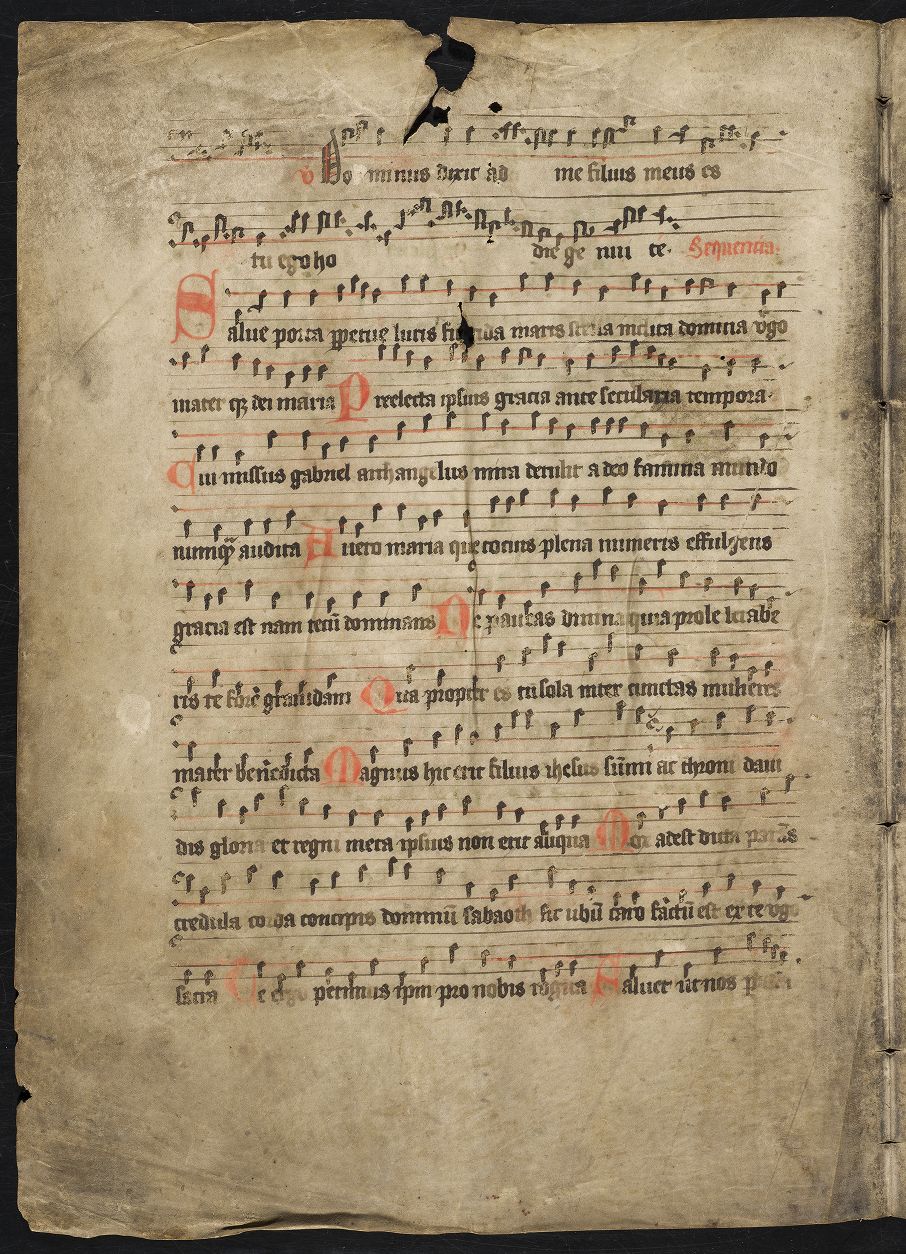 v Dominus dixit ad me filius meus es
tu ego ho die ge nui te. Sequencia.
Salue porta ppetue lucis maris stella inclita domina v̾go
mater q₃ dei maria Preelecta ipsius gracia ante secularia tempora.
Cui missus gabriel archangelus mira detulit a deo famina mundo
numq̄ȝ audita Aueto maria que totius plena muneris effulgens
gracia est nam tecū dominans Ne paueas diuina quia prole letabe
ris te fore grauidam Qua propter es tu sola inter cunctas mulieres
mater benedicta Magnus hic erit filius ihesus sūmi ac throni daui
dis gloria et regni meta ipsius non erit aliqua Mox adest dicta
credula corda concipis dominū sabaoth sic ubū caro factū est ex te v̾go
sacra Te ergo petimus ip̄m pro nobis Saluet ut nos